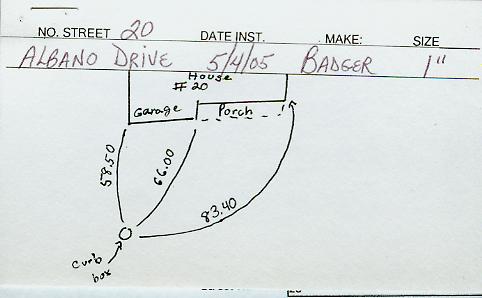 NO. STREET 20 DATE INST. MAKE: SIZE
ALBANO DRIVE 5/4/05 BADGER 1"
House
# 20
Garage Porch
58.50
66.00
83.40
curb
box